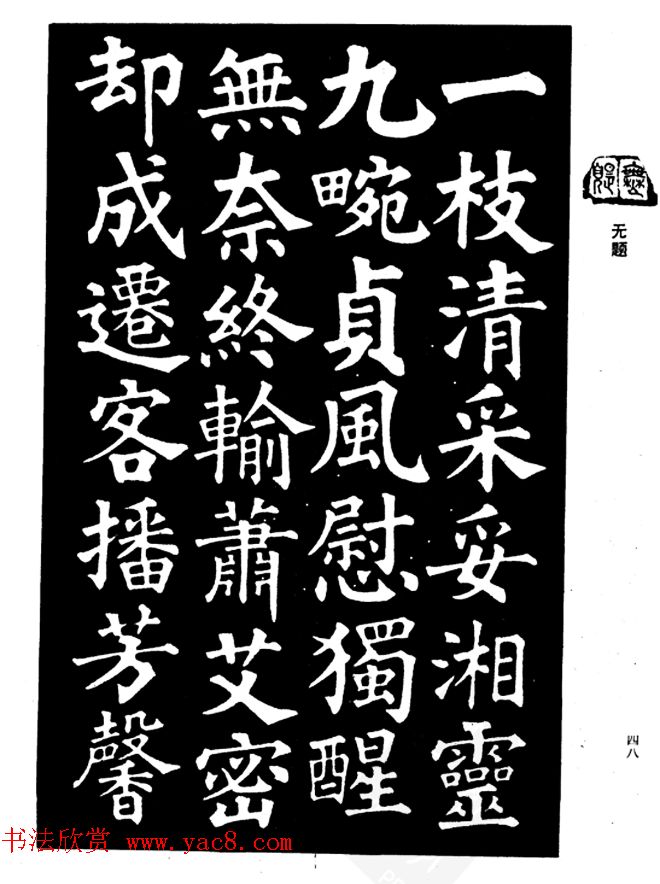 無題
无题
一枝清采妥湘靈
九畹貞風慰獨醒
無奈終輸蕭艾密
却成遷客播芳馨
四八
书法欣赏 www.yac8.com